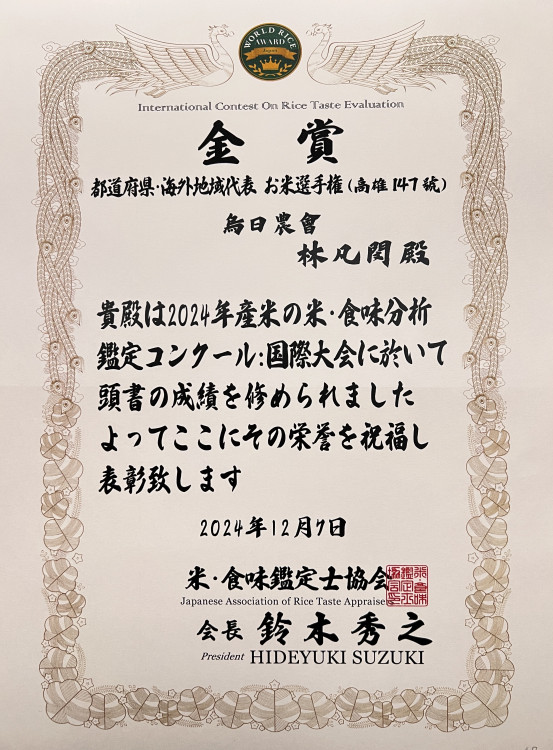 WORLD RICE
AWARD
Japan
International Contest On Rice Taste Evaluation
金賞
都道府県・海外地域代表 お米選手権(高雄147號)
烏日農會
林凡閔殿
貴殿は2024年産米の米・食味分析
鑑定コンクール:国際大会に於いて
頭書の成績を修められました
よってここにその栄誉を祝福し
表彰致します
2024年12月7日
米・食味鑑定士協会
Japanese Association of Rice Taste Appraise
会長 鈴木秀之
President HIDEYUKI SUZUKI